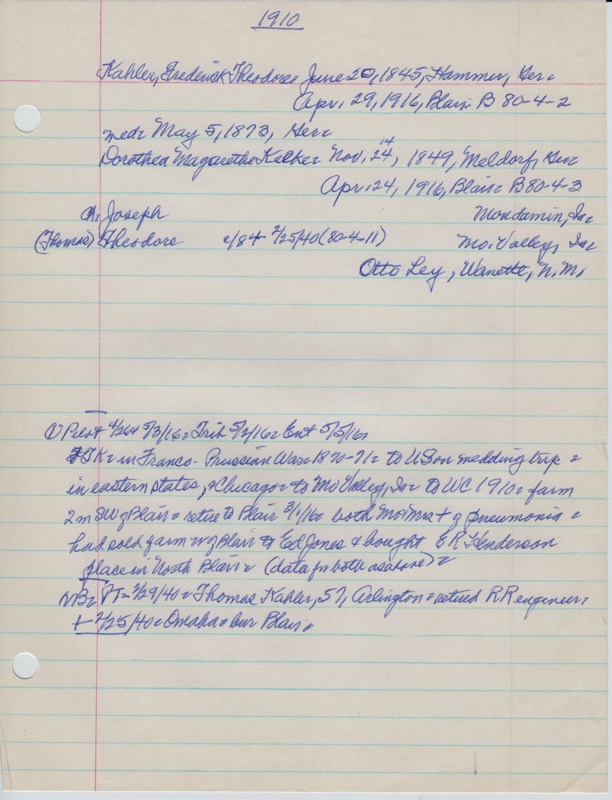 1910
Kahler, Frederick Theodore = June 20, 1845, Hammer, Ger =
Apr. 29, 1916, Blair = B 80-4-2
med = May 5, 1873, Ger =
Dorothea Magarethe Kelker = Nov. 24, 14, 1849, Meldorf, Ger
Apr. 24, 1916, Blair = B 80-4-3
ch. Joseph Mondamin, Ia
(Thomas) Theodore c/84 - 2/25/40 (80-4-11) Mo. Valley, Ia
Otto Ley, Wanette, N.M.
① Pilot 4/26 + 5/3/16 = Trib 5/3/16 = Ent 5/5/16 =
FTK = in Franco-Prussian War = 1870-71 = to US on wedding trip =
in eastern states, + Chicago = to Mo Valley, Ia = to WC 1910 = farm
2 m SW of Blair = retire to Blair 3/1/16 = both + of pneumonia =
had sold farm w of Blair to Ed Jones + bought E R Henderson
place in North Blair = (data fn both as above) =
B = PT = 2/29/40 = Thomas Kahler, 57, Arlington = retired RR engineer =
+ 2/25/40 = Omaha = bur Blair =